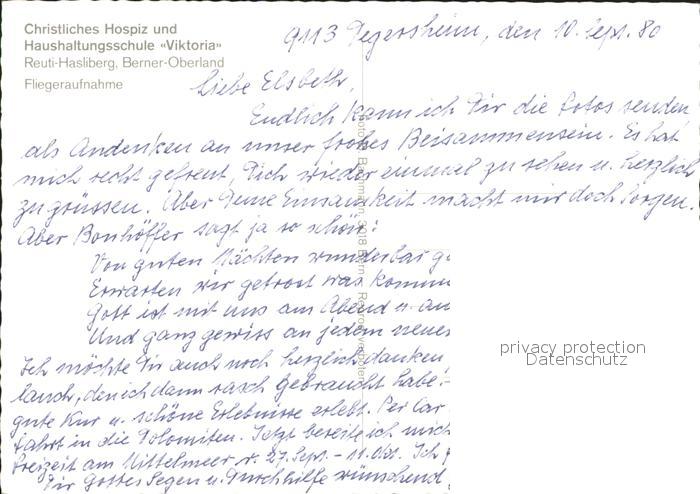 Christliches Hospiz und
Haushaltungsschule «Viktoria»
Reuti-Hasliberg, Berner-Oberland
Fliegeraufnahme
9113 Degersheim, den 10. Sept. 80
Liebe Elsbeth,
Endlich kann ich Dir die Fotos senden
als Andenken an unser frohes Beisammensein. Es hat
mich recht gefreut, Dich wieder einmal zu sehen u. herzlich
zu grüssen. Aber Deine Einsamkeit macht mir doch Sorgen.
Aber Bonhöffer sagt ja so schön:
Von guten Mächten wunderbar g
Erwarten wir getrost was komm
Gott ist mit uns am Abend u. am
Und ganz gewiss an jedem neue
Ich möchte Dir auch noch herzlich danken
, den ich dann rasch gebraucht habe!
gute Kur u. schöne Erlebnisse erlebt. Per Car
fahrt in die Dolomiten. Jetzt bereite ich mich
Freizeit am Mittelmeer v. 27. Sept. – 11. Okt. Ich
Dir Gottes Segen u. Durchhilfe wünschend
privacy protection
Datenschutz